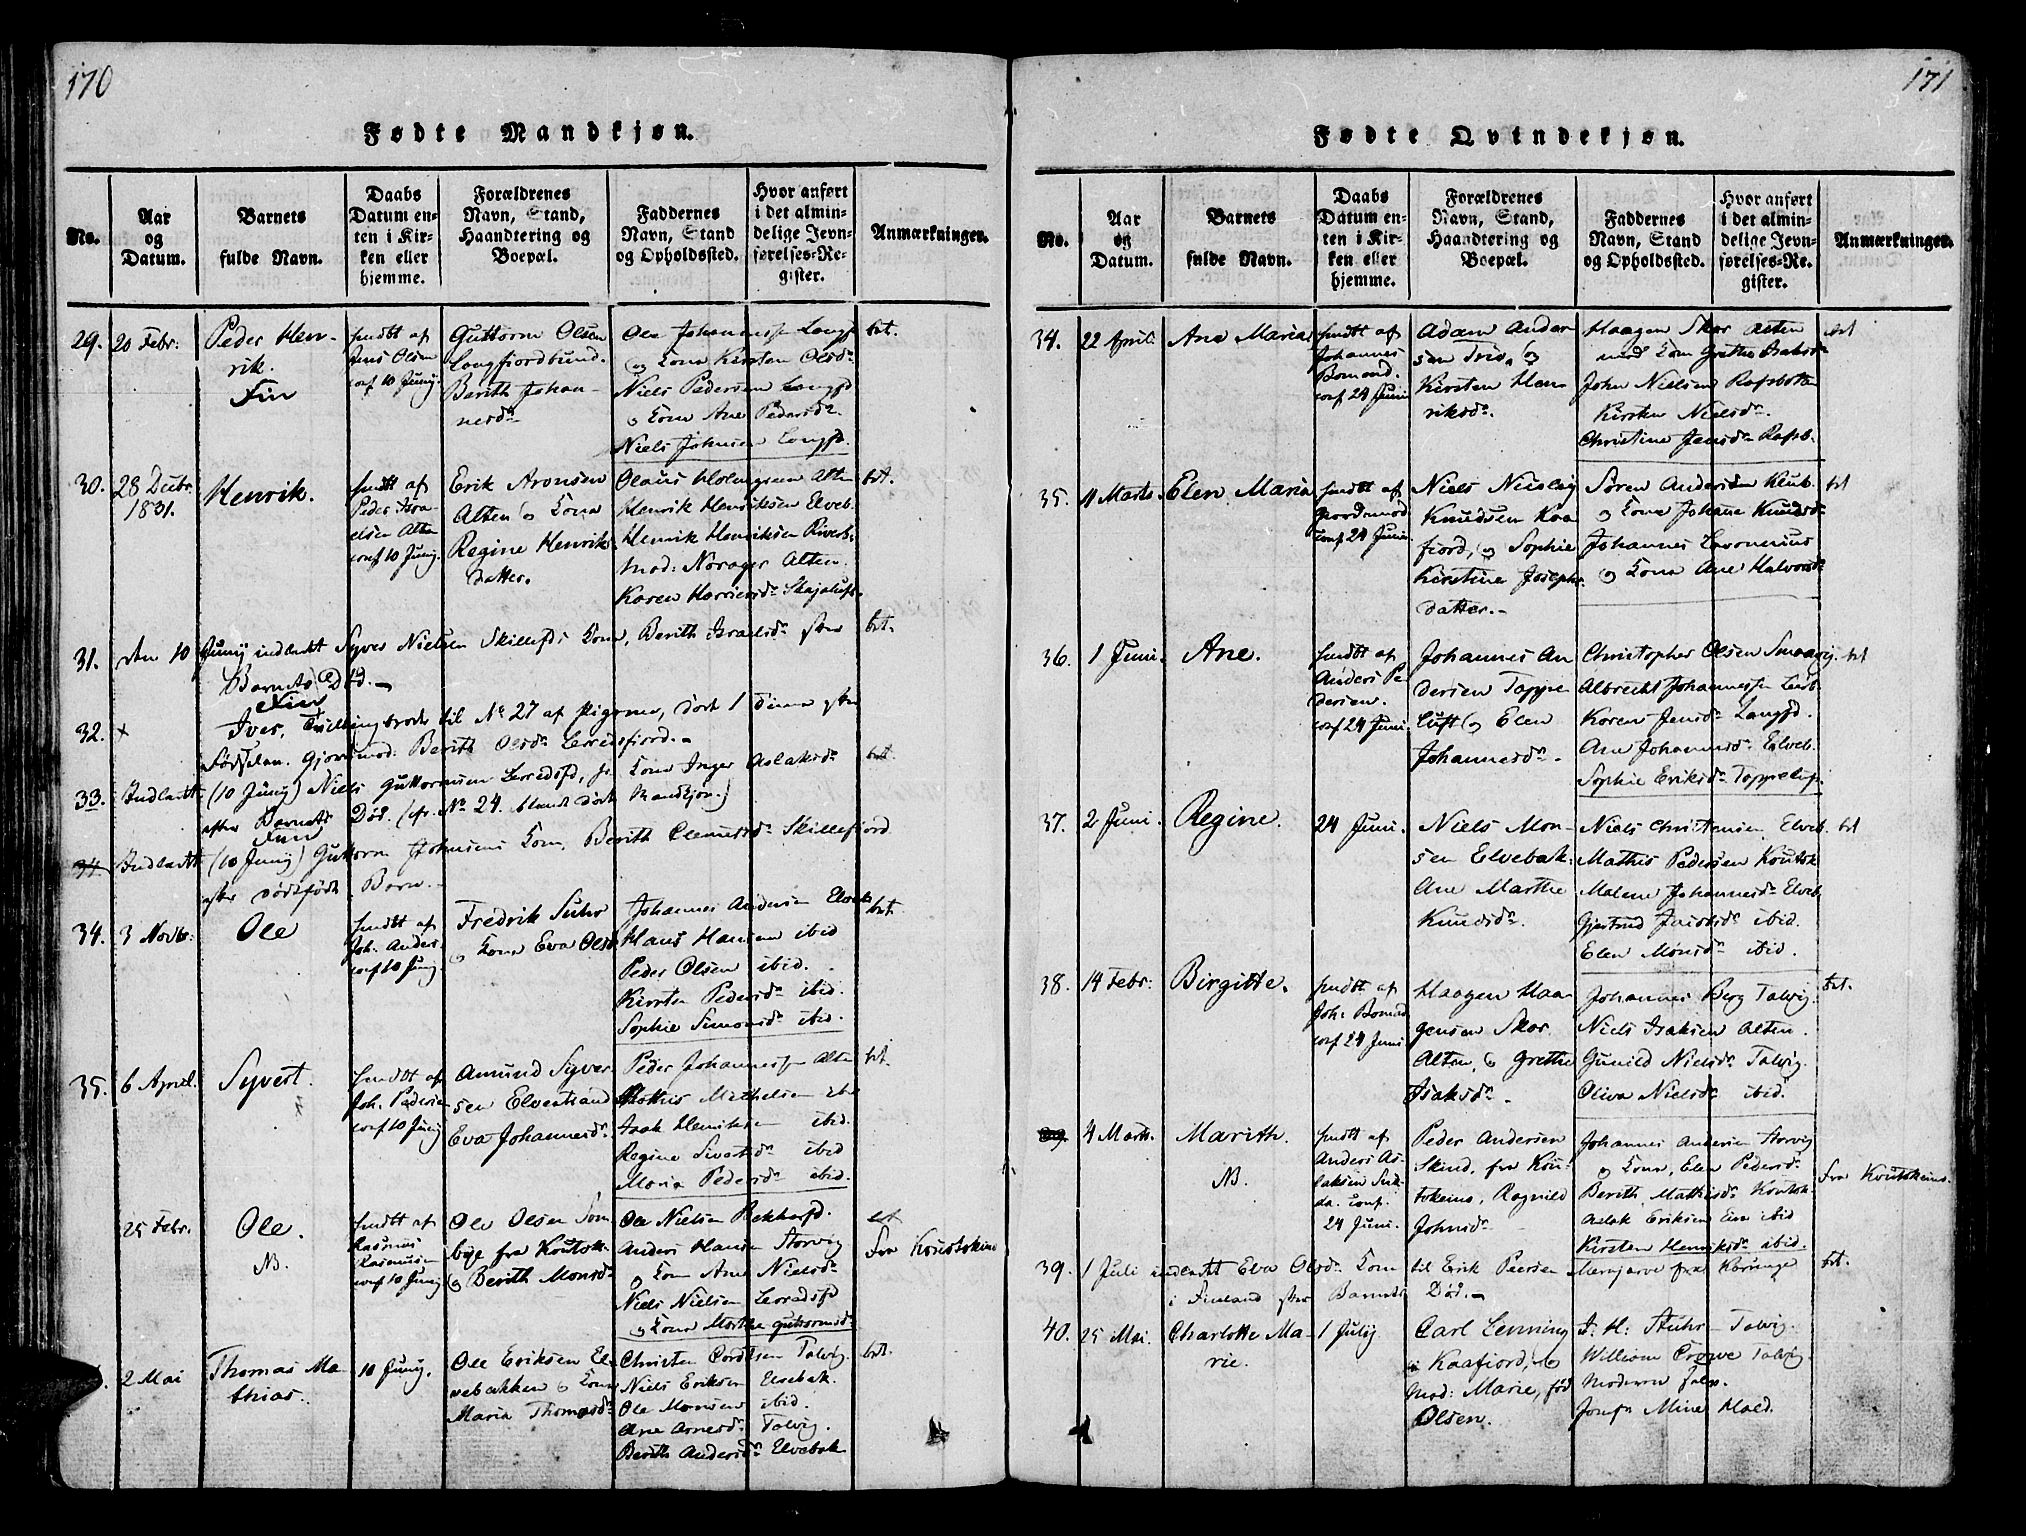 170
Fødte Mandkjøn.
No.
Aar
og
Datum.
Barnets
fulde Navn.
Daabs
Datum en-
ten i Kir-
ken eller
hjemme.
Forældrenes
Navn, Stand,
Haandtering og
Boepæl.
Faddernes
Navn, Stand
og Opholdssted.
Hvor anført
i det almin-
delige Jevn-
førelses-Re-
gister.
Anmærkninger.
29.
20 Febr:
Peder Hen-
rik.
Fin
hmdt af
Jens Olsen
conf 10 Junij.
Guttorm Olsen
Longfjordbund.
Berith Johan-
nesdr
Ole Johannessn Langf
og Kona Kirsten Olsdr
Niels Pedersen Langfd
og Kona Ane Pedersdr.
Niels Johnsen Langfd.
bet.
30.
28 Decbr.
1831.
Henrik.
hmdt af
Peder Isra-
elsen Alten
conf 10 Junij.
Erik Aronsen
Alten og Kona
Regine Henriks
datter.
Olaus Holmgreen Alten
Henrik Henriksen Elveb.
Henrik Henriksen
Mad: Norager Alten.
Karen
bet.
31.
den 10 Junij indledt Syver Nielsen Skillefds Kona, Berith Israelsdr efter
Barnets Død.
bet.
32.
Fin
Iver, Tvillingbroder til No 27 af Pigerne, død 1 Time efter
Fødselen. Gjordmod: Berith Olsdr Lerredsfjord.
33.
Indledt (10 Junij) Niels Guttormsen Lerredsfd, Kona Inger Aslaksdr
efter Barnets Død. (cfr. No 24. blandt døde Mandkjøn.)
bet
Fin
Indledt (10 Junij) Guttorm Johnsens Kona, Berith Clemetsdr Skillefjord
efter dødfødt Barn.
34.
3 Novbr:
Ole
hmdt af
Joh. Anders
conf 10 Junij.
Fredrik Suhr
og Kona Eva Olsdr
Johannes Andersen Elveb
Hans Hansen ibid
Peder Olsen ibid.
Kirsten Pedersdr ibid.
Sophie Simonsdr ibid.
bet.
35.
6 April.
Syvert.
hmdt af
Joh. Pedersen
conf 10 Junij
Amund Syver
sen Elvestrand
Eva Johannesdr
Peder Johannessn Alten
Mathis Mathesen ibid
Isak Henriksen ibid.
Regine Sivertsdr ibid
Maria Pedersdr ibid.
bet.
25 Febr.
Ole.
N.
hmdt af
Rasmus
Rasmussen
conf 10 Junij
Ole Olsen Som
bye fra Koutok.
og Berith Monsdr
Ole Nielsen Rekharfd.
Anders Hansen Storvig
og Kona Ane Nielsdr
Niels Nielsen Lerredsfd
og Kona Marthe Guttormsdr
bet
fra Koutokeino
2 Mai
Thomas Ma-
thias.
10 Junij.
Ole Eriksen El-
vebakken og Kona
Maria Thomasdr
Christen Cordtsen Talvig.
Niels Eriksen Elvebak.
Ole Monsen ibid.
Ane Arnesdr Talvig.
Berith Andersdr Elvebak
bet.
171
Fødte Qvindekjøn.
No.
Aar
og
Datum.
Barnets
fulde Navn.
Daabs
Datum en-
ten i Kir-
ken eller
hjemme.
Forældrenes
Navn, Stand,
Haandtering og
Boepæl.
Faddernes
Navn, Stand
og Opholdssted.
Hvor anført
i det almin-
delige Jevn-
førelses-Re-
gister.
Anmærkninger.
34.
22 April.
Ane Maria
hmdt af
Johannes
Bomand.
conf 24 Juni
Adam Ander
sen Trid, og
Kirsten Hen
riksdr.
Haagen Skor Alten
med Kona Grethe Isaksdr
John Nielsen Rafsbotn
Kirsten Nielsdr.
Christine Jensdr Rafsb.
bet
35.
11 Marts.
Elen Maria
hmdt af
Jordemod
conf 24 Juni
Niels Nicolay
Knudsen Kaa
fjord, og Sophie
Kirstine Josephs
datter.
Søren Andersen Klub.
og Kona Johane Knudsdr
Johannes
og Kona Ane Halvorsdr
bet
36.
1 Juni.
Ane.
hmdt af
Anders Pe
dersen.
conf 24 Juni.
Johannes An
dersen Toppe
luft og Elen
Johannesdr.
Christopher Olsen Smaavig.
Albrecht Johannessn
Karen Jensdr Langfd.
Ane Johannesdr Elveb.
Sophie Eriksdr Toppeluft.
bet
37.
2 Juni.
Regine.
24 Juni.
Niels Mon-
sen Elvebak.
Ane Marthe
Knudsdr.
Niels Christensen Elveb.
Mathis Pedersen Koutok
Malene Johannesdr Elveb
Gjertrud ibid.
Elen Monsdr ibid.
bet
38.
14 Febr:
Birgitte.
hmdt af
Joh: Bomad
conf 24 Juni
Haagen Haa
gensen Skor
Alten, og Grethe
Isaksdr.
Johannes Berg Talvig.
Niels Isaksen Alten.
Gunild Nielsdr Talvig.
Oliva Nielsdr ibid.
bet.
4 Marts.
Marith.
N.
hmdt af
Anders As-
laksen
conf.
24 Juni.
Peder Andersen
Skind, fra Kou-
tokeino, Ragnild
Johnsdr
Johannes Andersen Storvig
og Kona, Elen Pedersdr
Berith Mathisdr Koutok
Aslak Eriksen ibid
Kirsten Henriksdr ibid.
fra Koutokeino.
39.
1 Juli indledt Eva Olsdr Kona til Erik Peersen Menjarve fra Karunge
i Finland efter Barnets Død.
bet.
40.
25 Mai.
Charlotte Ma-
rie.
1 July
Carl Lenning
i Kaafjord, og
Mad: Marie, fød
Olsen.
J. H: Stuhr Talvig.
William Crowe Talvig.
Moderen selv.
Jomfr Mine Hald.